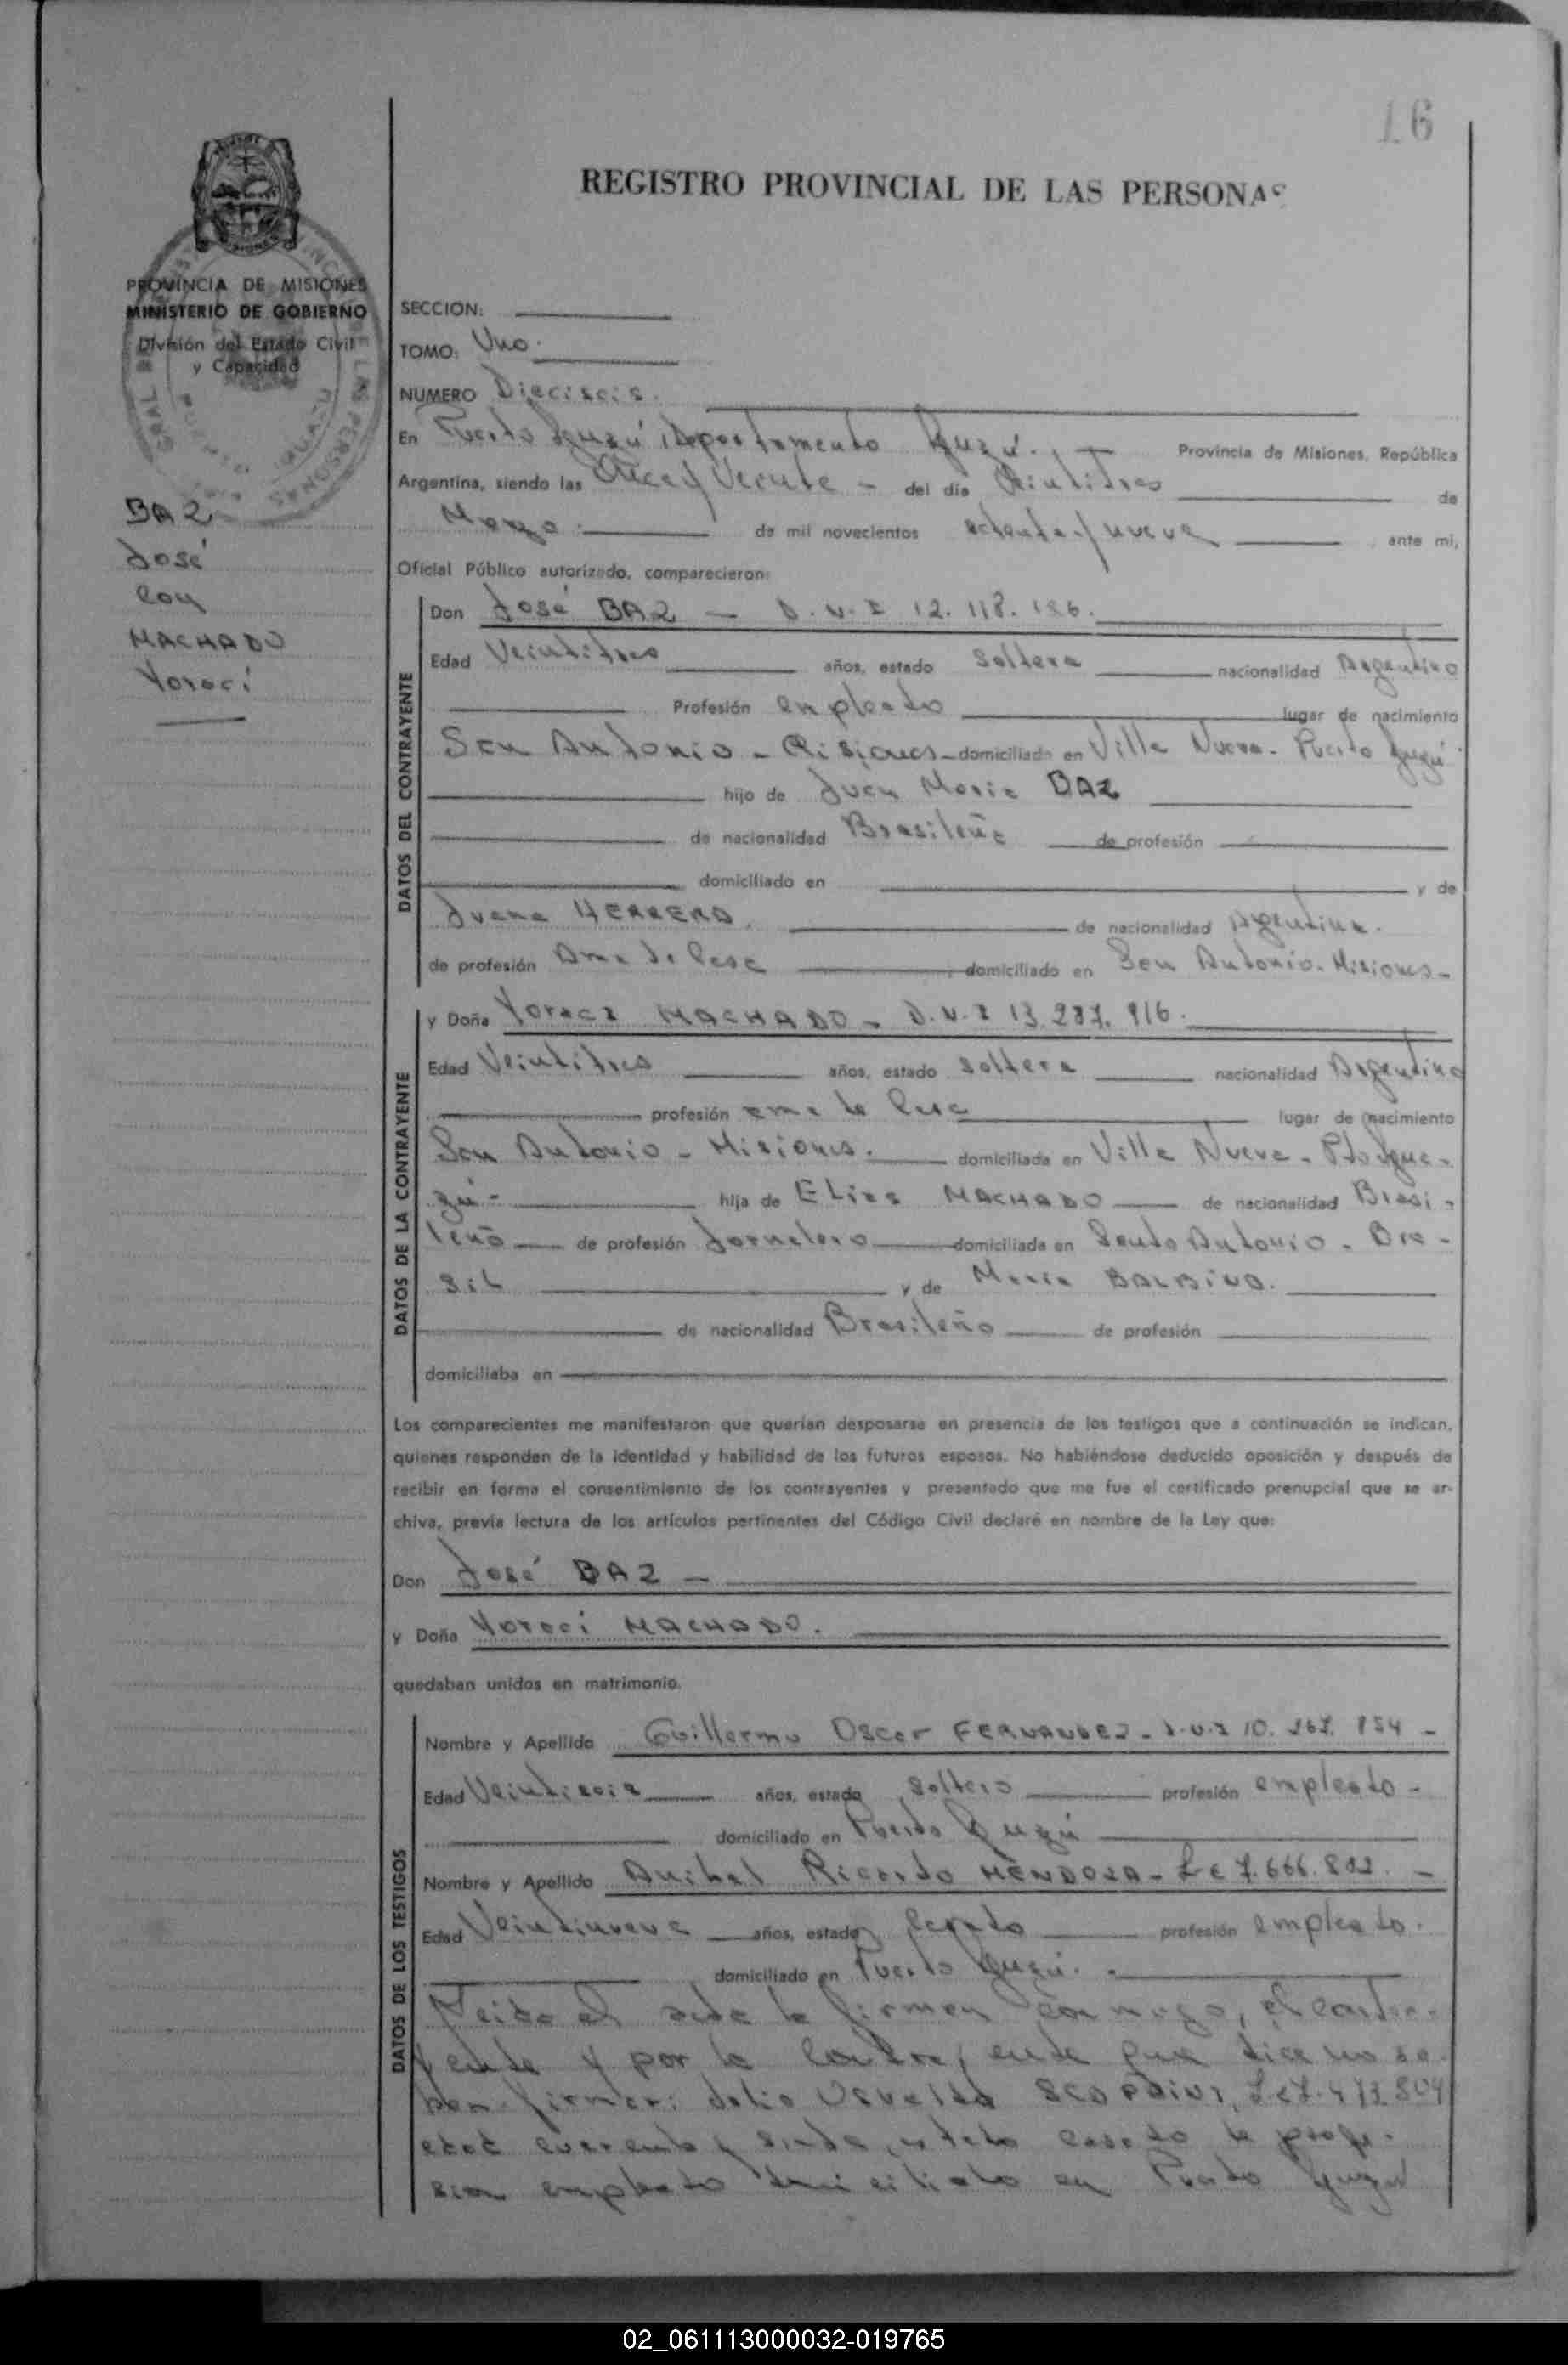 16
REGISTRO PROVINCIAL DE LAS PERSONAS
PROVINCIA DE MISIONES
MINISTERIO DE GOBIERNO
División del Estado Civil
y Capacidad
BAZ
José
con
MACHADO
Yoraci
SECCION:
TOMO: Uno.
NUMERO Dieciseis.
En Puerto Iguazú, Departamento Iguazú. Provincia de Misiones, República
Argentina, siendo las Once y Veinte - del día Veintitres de
Mayo de mil novecientos setenta y nueve ante mi,
Oficial Público autorizado, comparecieron:
DATOS DEL CONTRAYENTE
Don José BAZ - D.N.I 12.118.186.
Edad Veintitres años, estado Soltero nacionalidad Argentino
Profesión empleado lugar de nacimiento
San Antonio - Misiones - domiciliado en Villa Nueva - Puerto Iguazú
hijo de Juan Maria BAZ
de nacionalidad Brasileña de profesión
domiciliado en y de
Juana HERRERA, de nacionalidad Argentina.
de profesión Ama de Casa domiciliado en San Antonio. Misiones -
DATOS DE LA CONTRAYENTE
y Doña Yoraci MACHADO - D.N.I 13.287.916.
Edad Veintitres años, estado Soltera nacionalidad Argentina
profesión ama de Casa lugar de nacimiento
San Antonio - Misiones. domiciliada en Villa Nueva - Pto Igua-
zú - hija de Elias MACHADO de nacionalidad Brasi-
leño de profesión Jornalero domiciliada en Santo Antonio - Bra-
sil y de Maria BALBINO.
de nacionalidad Brasileño de profesión
domiciliaba en
Los comparecientes me manifestaron que querían desposarse en presencia de los testigos que a continuación se indican,
quienes responden de la identidad y habilidad de los futuros esposos. No habiéndose deducido oposición y después de
recibir en forma el consentimiento de los contrayentes y presentado que me fue el certificado prenupcial que se ar-
chiva, previa lectura de los artículos pertinentes del Código Civil declaré en nombre de la Ley que:
Don José BAZ -
y Doña Yoraci MACHADO.
quedaban unidos en matrimonio.
DATOS DE LOS TESTIGOS
Nombre y Apellido Guillermo Oscar FERNANDEZ - D.N.I 10. 854 -
Edad Veintiseis años, estado soltero profesión empleado -
domiciliado en Puerto Iguazú
Nombre y Apellido Anibal Ricardo MENDOZA - L E 7.666.802. -
Edad Veintinueve años, estado casado profesión empleado.
domiciliado en Puerto Iguazú.
Leida el acta la firman con migo, el contra-
yente y por la Contrayente que dice no sa-
ber firmar:
edad cuarenta y siete, estado casado de profe-
sion empleado domiciliado en Puerto Iguazú
02_061113000032-019765